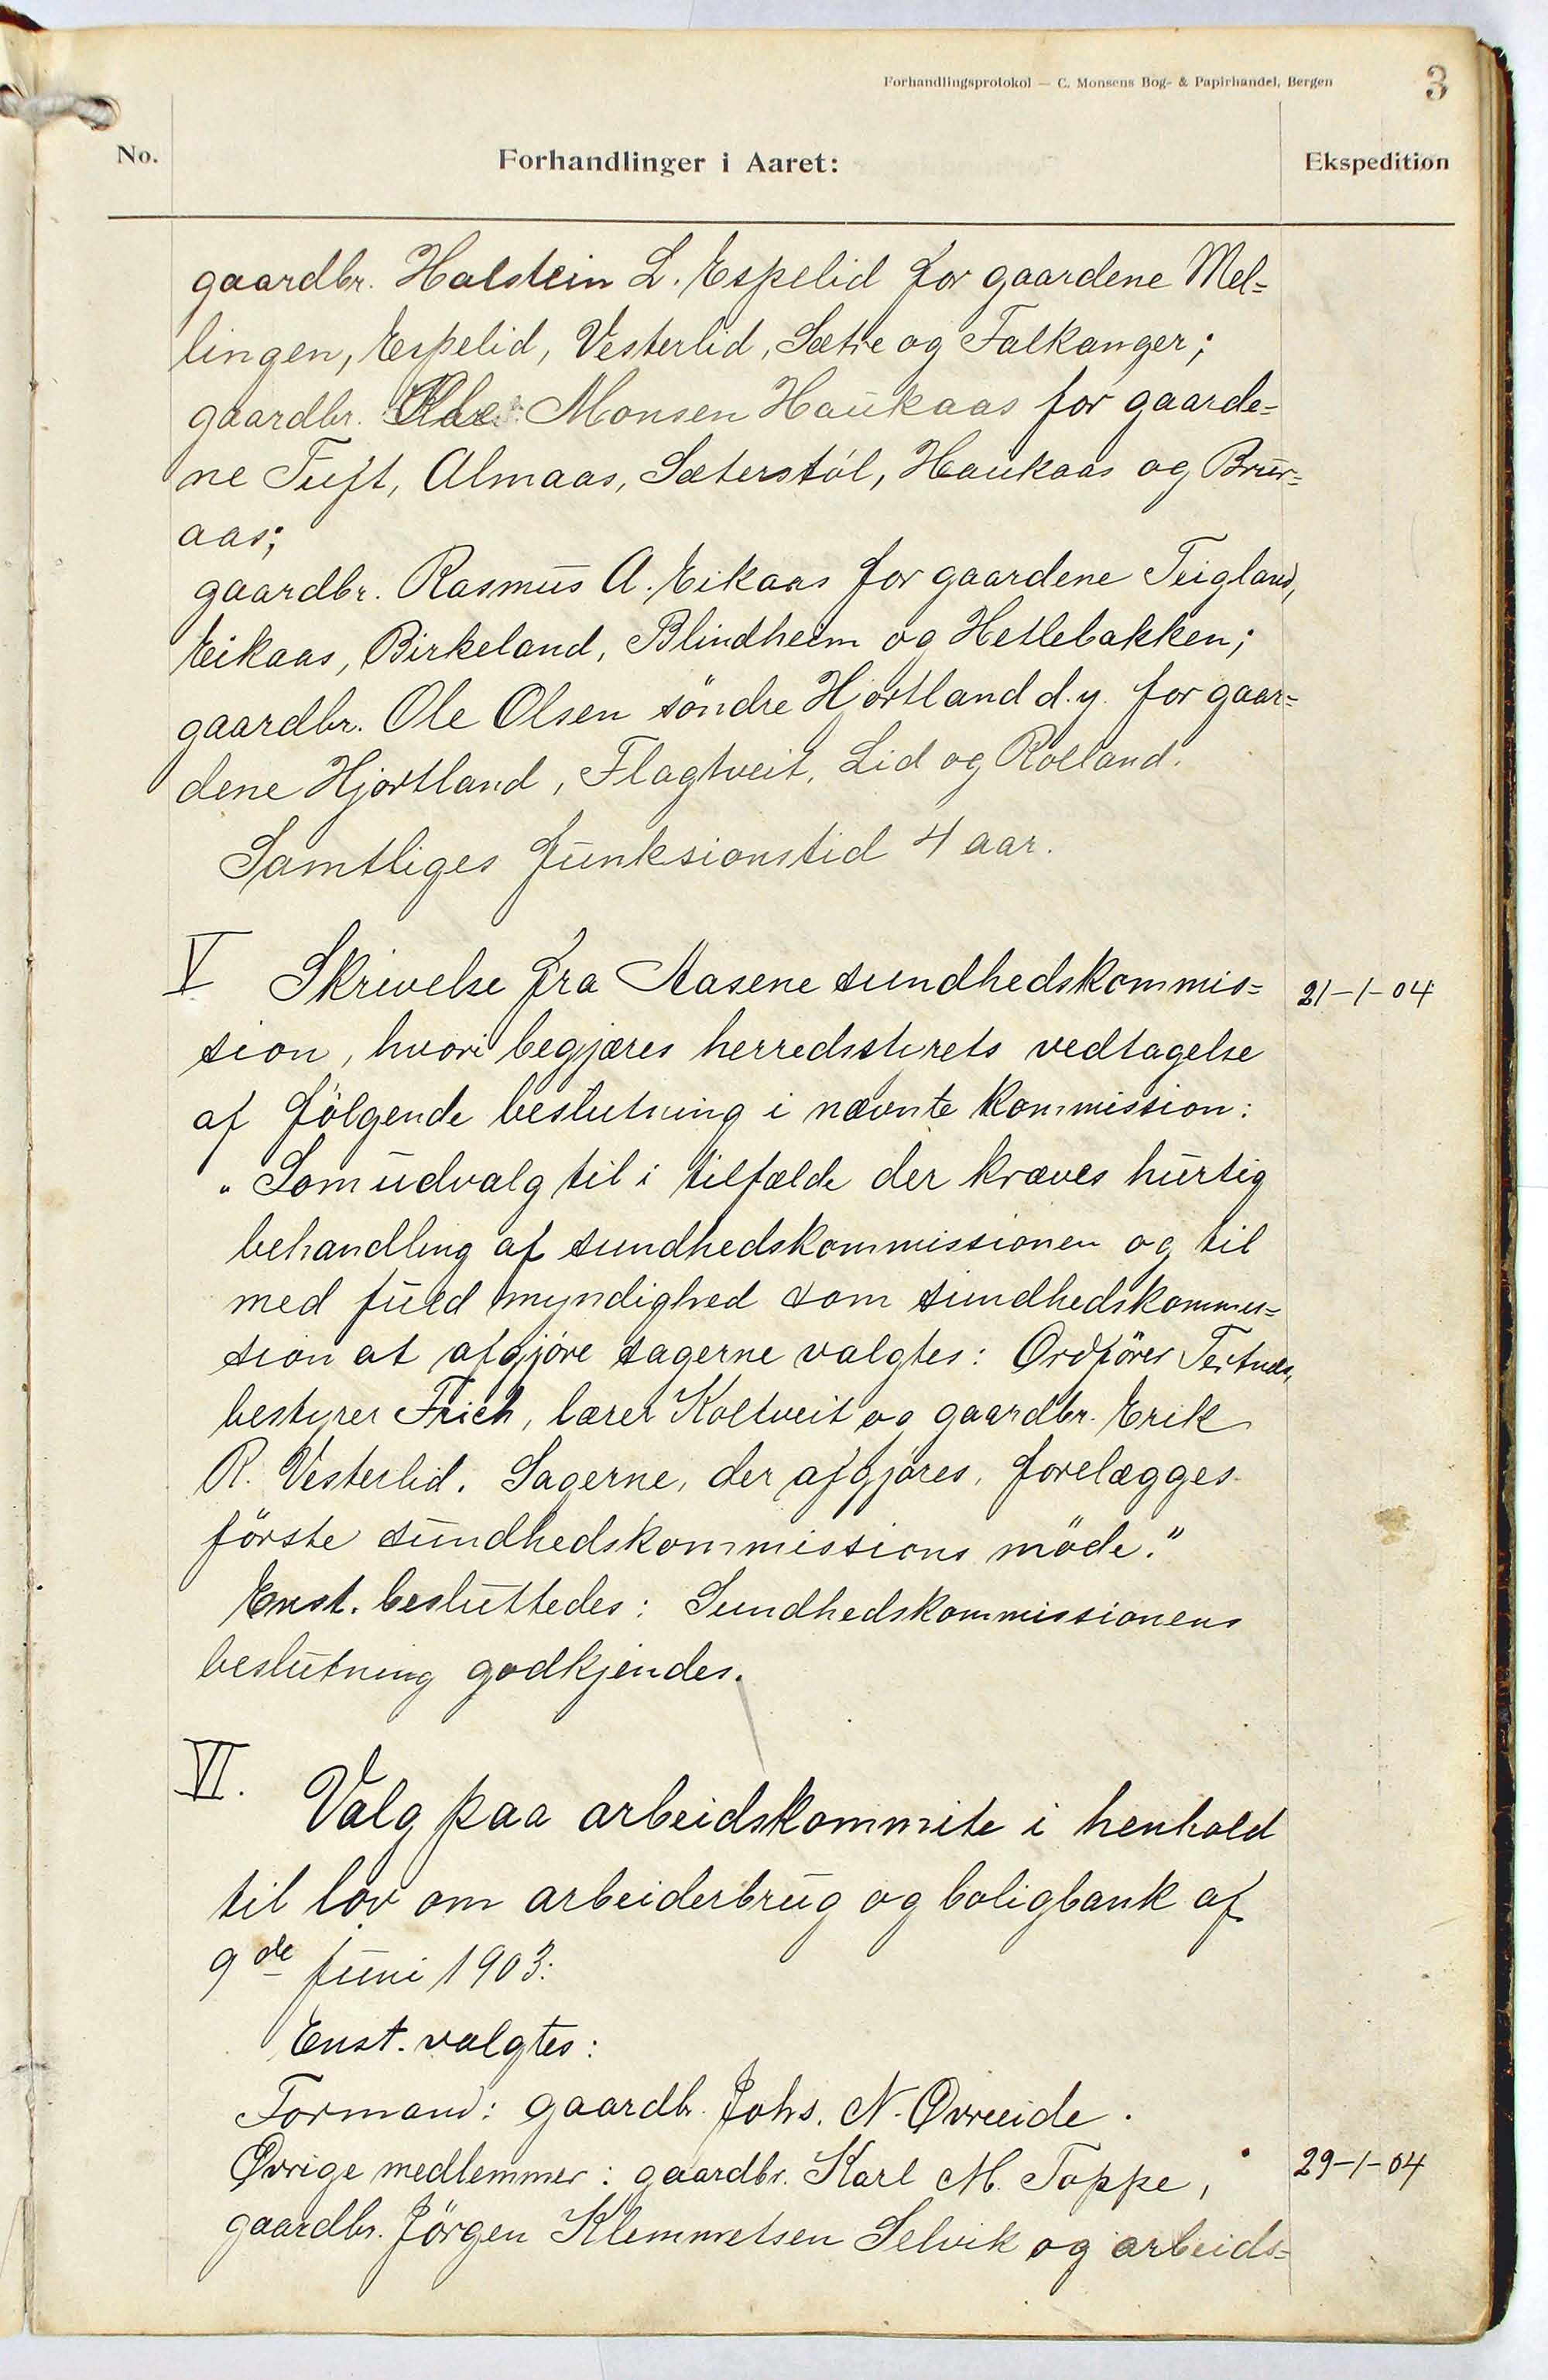 Forhandlingsprotokol — C. Monsens Bog- & Papirhandel, Bergen
3
No.
Forhandlinger i Aaret:
Ekspedition
gaardbr. Halstein L. Espelid for gaardene Mel=
lingen, Espelid, Vesterlid, Sætre og Falkanger;
gaardbr. Monsen Haukaas for gaarde=
ne Tuft, Almaas, Sæterstöl, Haukaas og Brur=
aas;
gaardbr. Rasmus A. Eikaas for gaardene Teigland,
Eikaas, Birkeland, Blindheim og Hetlebakken;
gaardbr. Ole Olsen söndre Hjortland d.y. for gaar=
dene Hjortland, Flagtveit, Lid og Rolland.
Samtliges funksionstid 4 aar.
V Skrivelse fra Aasene sundhedskommis=
21-1-04
sion, hvori begjæres herredsstyrets vedtagelse
af fölgende beslutning i nævnte kommission:
"Som udvalg til i tilfælde der kræves hurtig
behandling af sundhedskommissionen og til
med fuld myndighed som sundhedskommis=
sion at afgjöre sagerne valgtes: Ordförer Tertnæs,
bestyrer Frich, lærer Koltveit og gaardbr. Erik
R. Vesterlid. Sagerne, der afgjöres, forelægges
förste sundhedskommissions möde."
Enst. besluttedes: Sundhedskommissionens
beslutning godkjendes.
VI. Valg paa arbeidskommite i henhold
til lov om arbeiderbrug og boligbank af
9de juni 1903:
Enst. valgtes:
Formand: gaardbr. Johs. N. Øvreeide.
Øvrige medlemmer: gaardbr. Karl M. Toppe,
29-1-04
gaardbr. Jörgen Klemmetsen Selvik og arbeids=